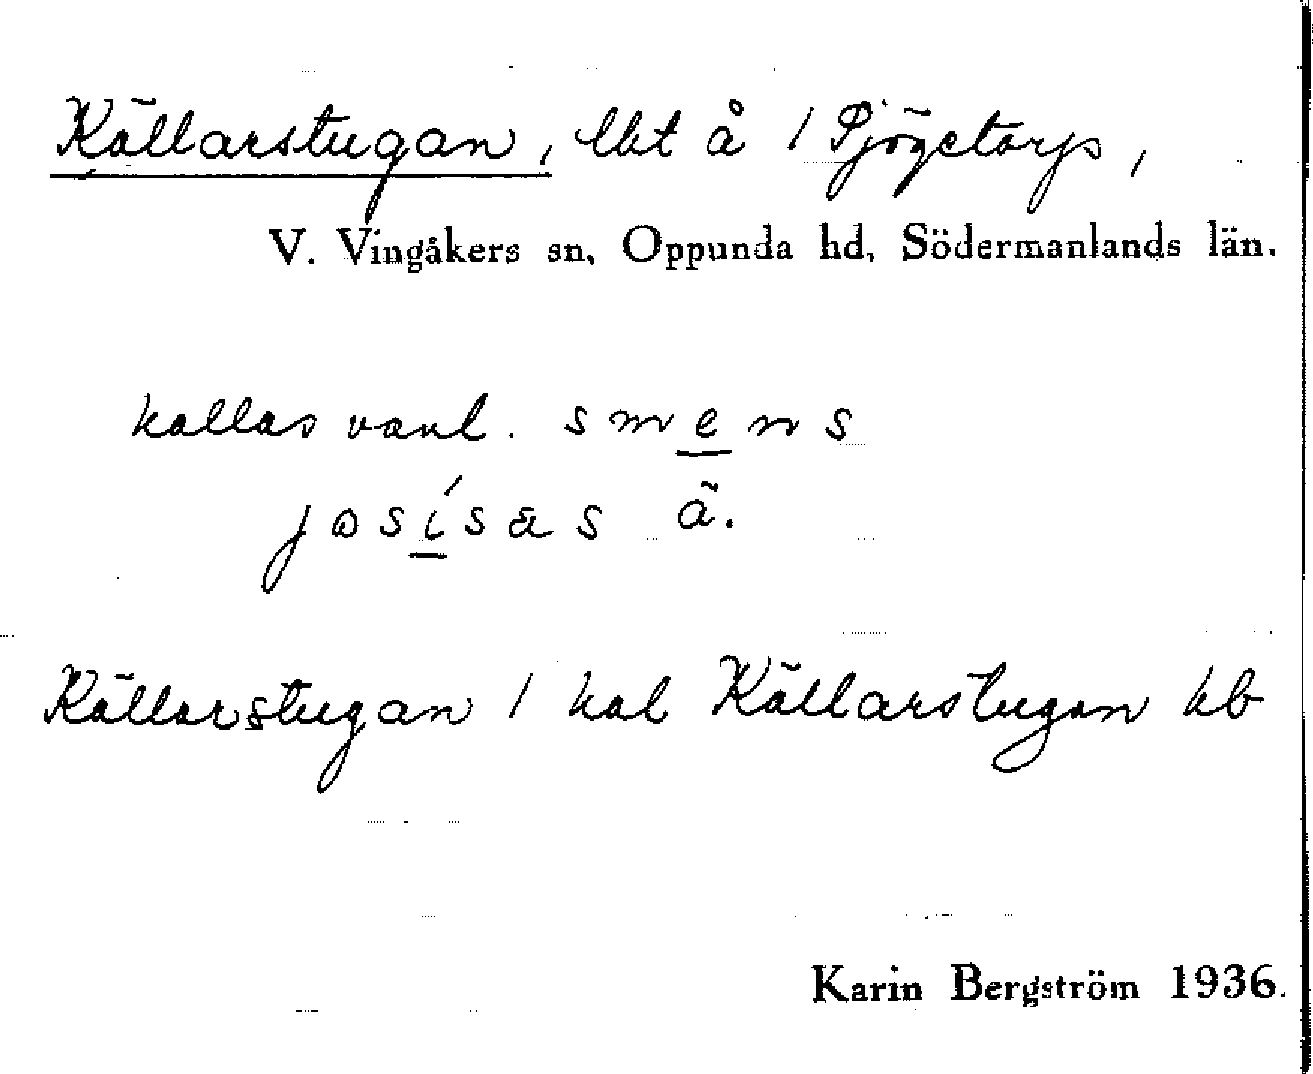 Källarstugan, lht å 1 Sjögetorp,
V. Vingåkers sn, Oppunda hd, Södermanlands län.
kallas vanl. smens
josisas ä.
Källarstugan 1 kal Källarstugan kb
Karin Bergström 1936.